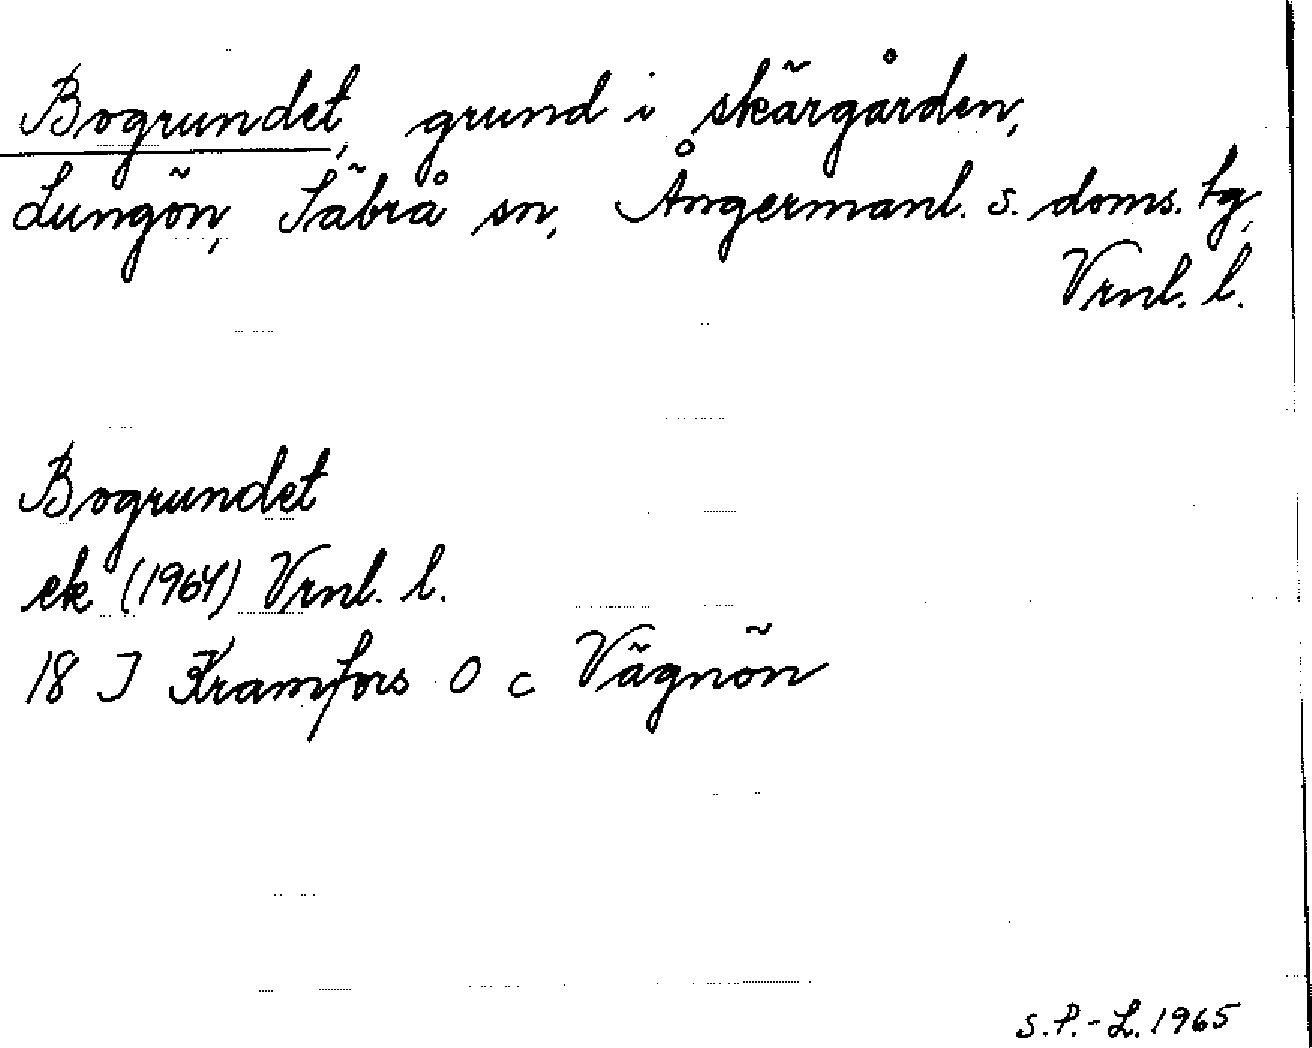 Bogrundet, grund i skärgården,
Lungön, Säbrå sn, Ångermanl. s. doms. tg,
Vrnl. l.
Bogrundet
ek (1964) Vrnl. l.
18 J Kramfors O c Vägnön
S.P.-L. 1965